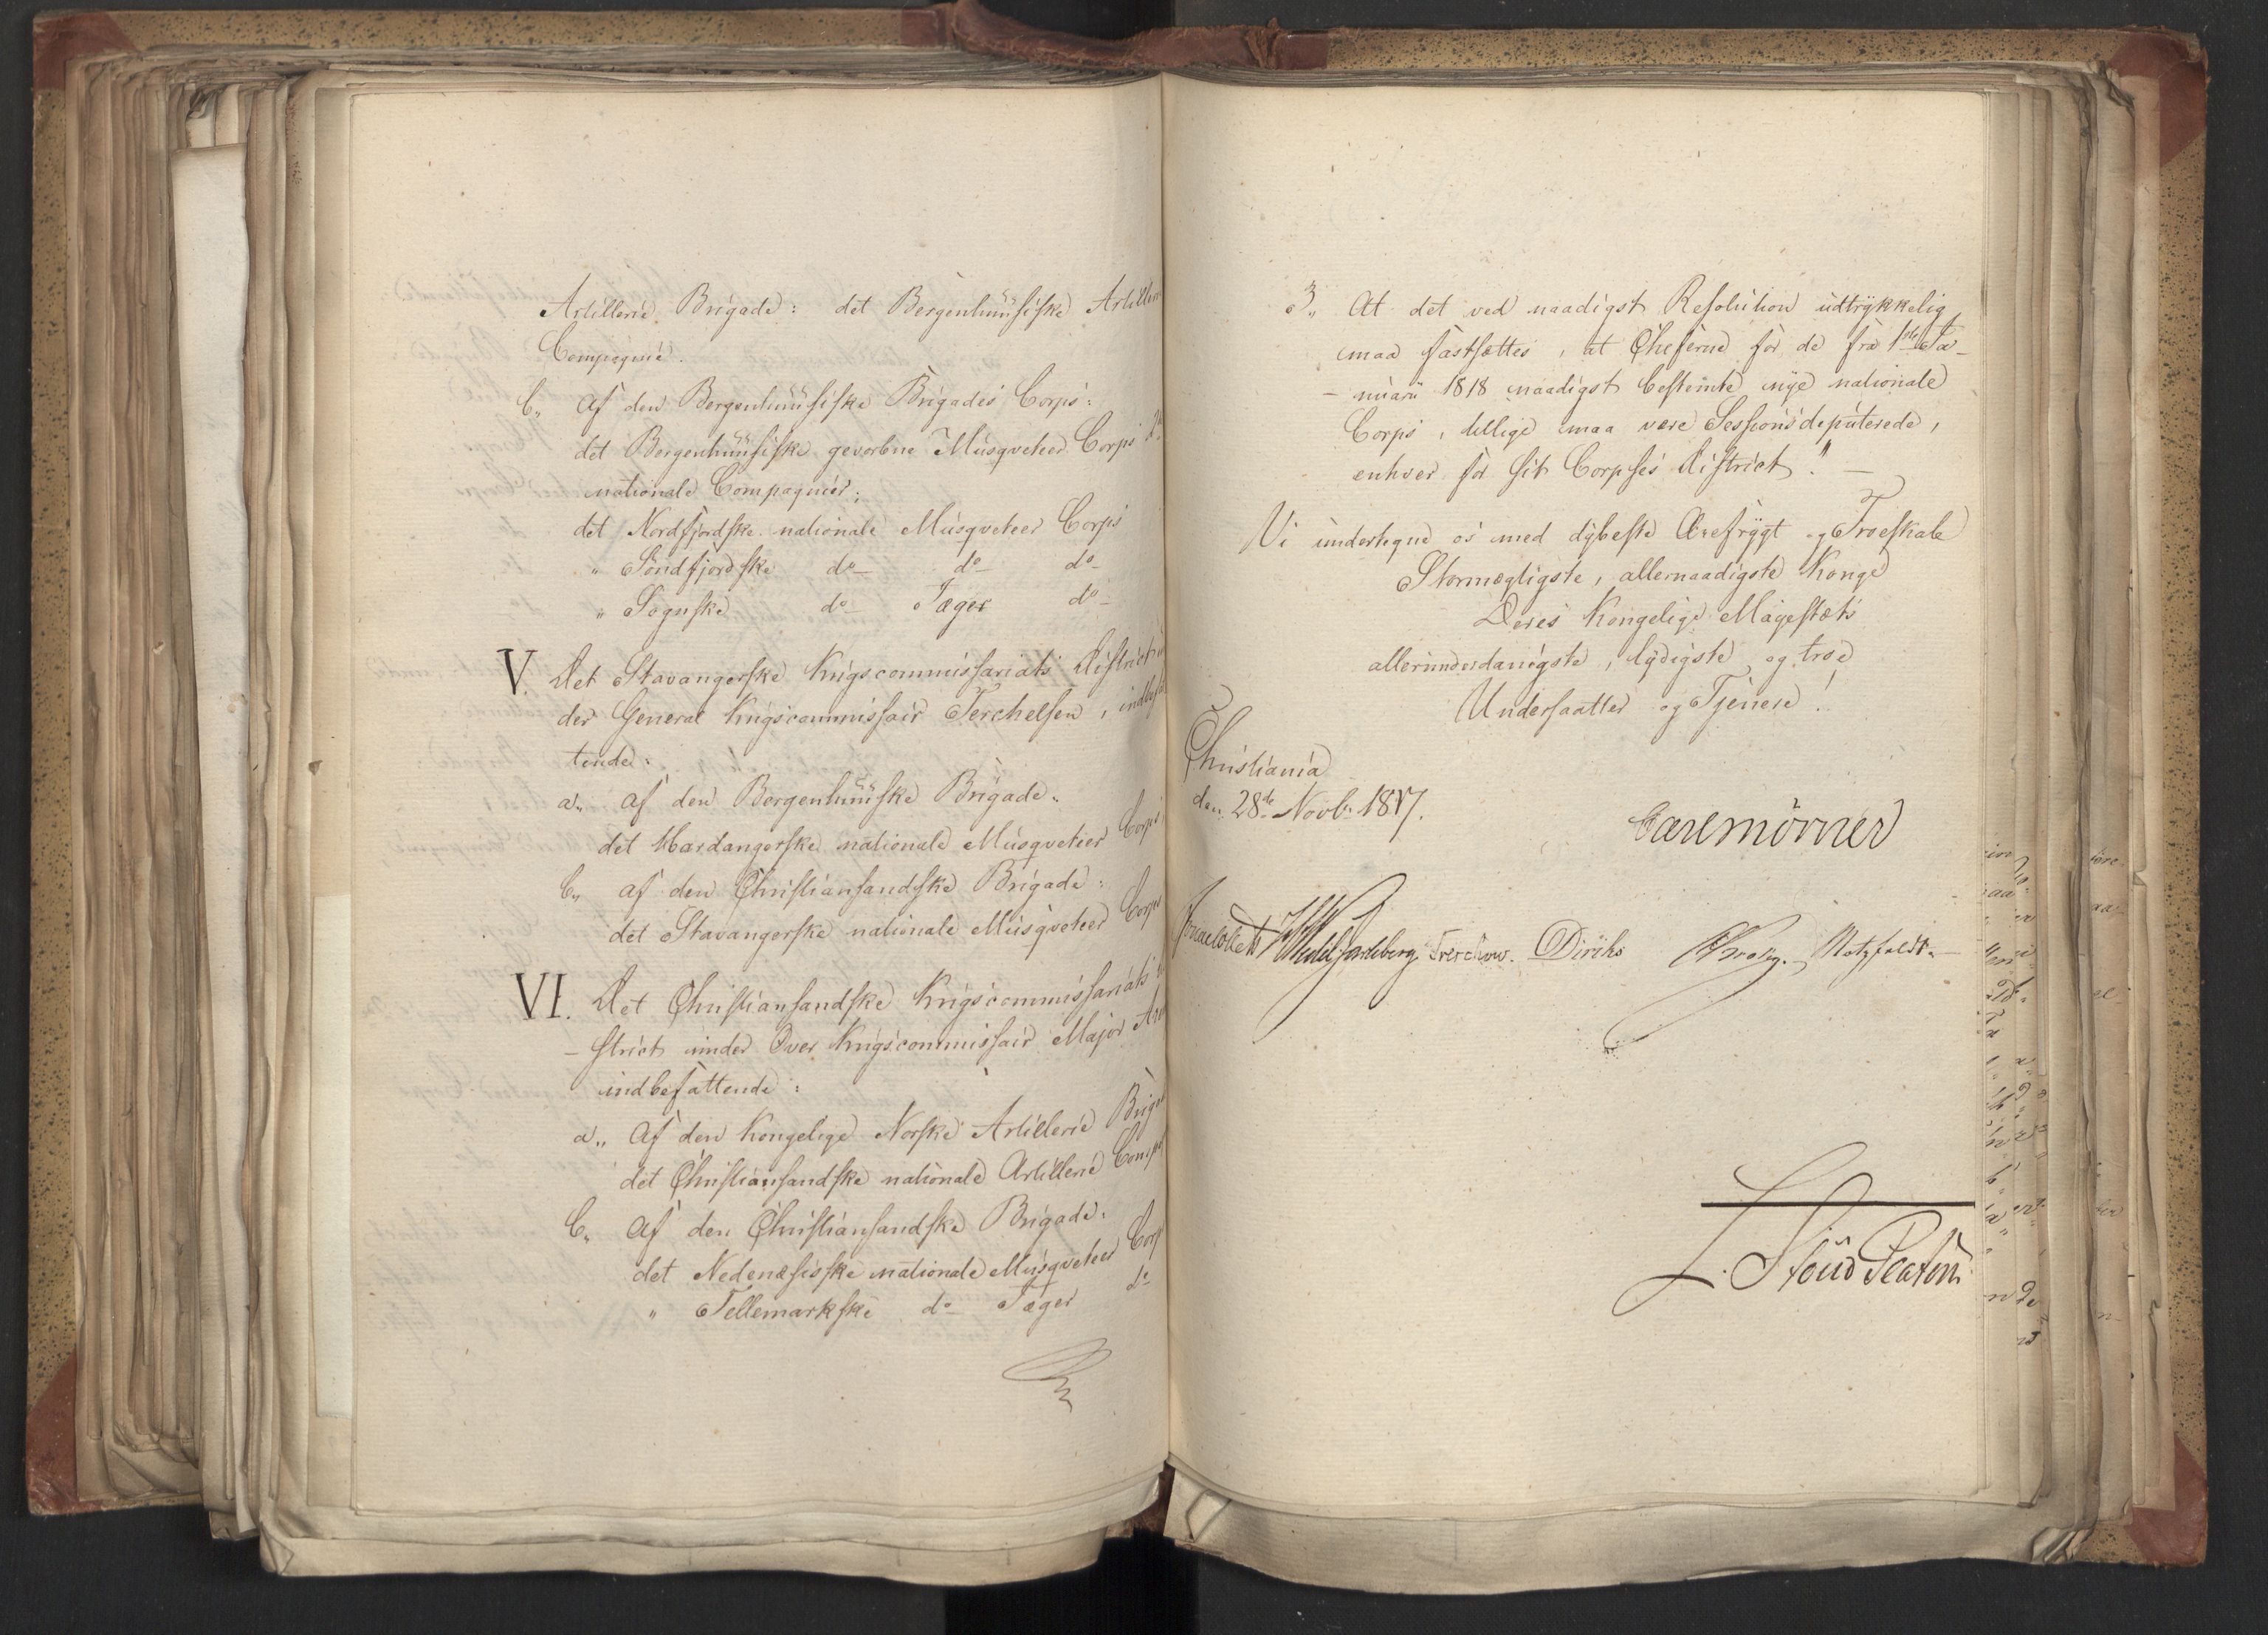 Artillerie Brigade: det Bergenhuusiske Artillerie
Compagnie.
b,, Af den Bergenhuusiske Brigades Corps:
det Bergenhuusiske gevorbne Musqveteer Corps 2de
nationale Compagnier;
det Nordfjordske nationale Musqveteer Corps
" Söndfjordske do do do
" Sognske do Jæger do
V. Det Stavangerske Krigscommissariats District
der General Krigscommissair Terchelsen, indbefat
tende:
a,, af den Bergenhuuske Brigade.
det Hardangerske nationale Musqveteer Corps
b,, af den Christiansandske Brigade:
det Stavangerske nationale Musqveteer Corps
VI. Det Christiansandske Krigscommissariats
- strict under Over Krigscommissair Major
indbefattende:
a,, Af den Kongelige Norske Artillerie Brigade
det Christiansandske nationale Artillerie Comp
b,, Af den Christiansandske Brigade.
det Nedenæsiske nationale Musqveteer Corp
" Tellemarkske do Jæger do
3,, At det ved naadigst Resolution udtrykkelig
maa fastsættes, at Cheferne for de fra 1ste Ja-
- nuarii 1818 naadigst bestemte nye nationale
Corps, tillige maa være Sessionsdeputerede,
enhver for sit Corpses District." —
Vi undertegne os med dybeste Ærefrygt og Troeskab
Stormægtigste, allernaadigste Konge
Deres Kongelige Majestæts
allerunderdanigste, lydigste og troe
Undersaatter og Tjenere!
Christiania
den 28de Novbr 1817.
Carl Mörner
Sommerhielm Wedel Jarlsberg Treschow. Diriks Krog. Motzfeldt.
L. Stoud Platou